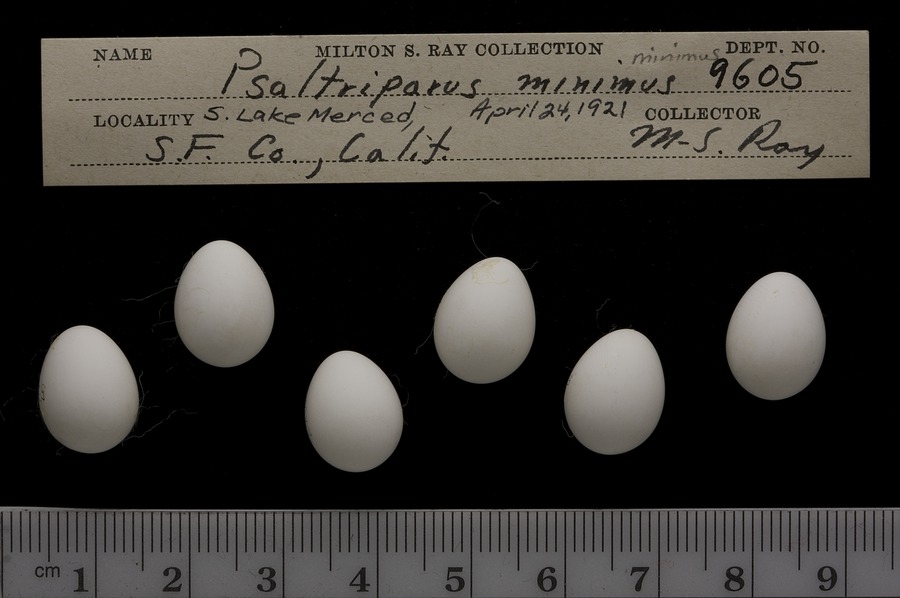 NAME MILTON S. RAY COLLECTION minimus DEPT. NO.
Psaltriparus minimus 9605
LOCALITY S. Lake Merced, April 24, 1921 COLLECTOR
S.F. Co., Calif. M-S. Ray
cm 1 2 3 4 5 6 7 8 9